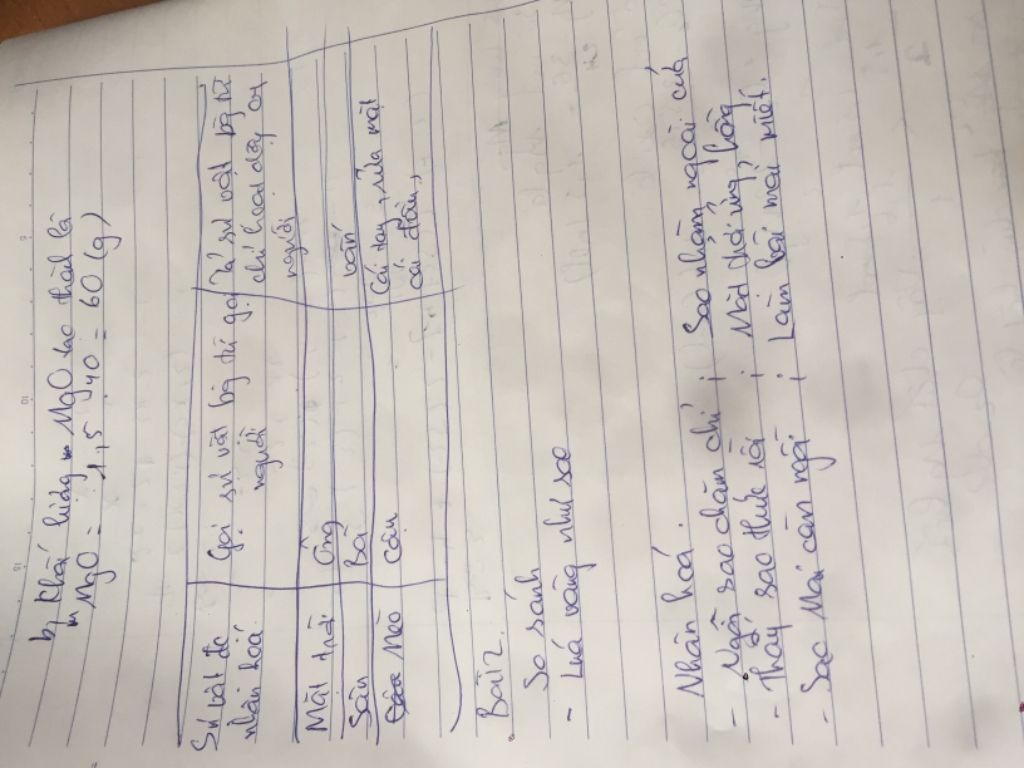 b, Khối lượng MgO tạo thành là
m MgO = 1,5 . 40 = 60 (g)
Sự vật đc nhân hoá
Gọi sự vật bg từ gọi người
Tả sự vật bg từ chỉ hoạt động của người
Mặt trời
Ông
Sân
Bà
vấn
Mèo
Cậu
tay, rửa mặt
Bài 2
So sánh
- Lúa vàng như sao
Nhân hoá.
- Ngôi sao chăm chỉ ; Sao nhòm ngoài cửa
- Thấy sao thức rồi ; Mặt trời ửng hồng
- Sao Mai còn ngồi ; Làm bài mải miết.